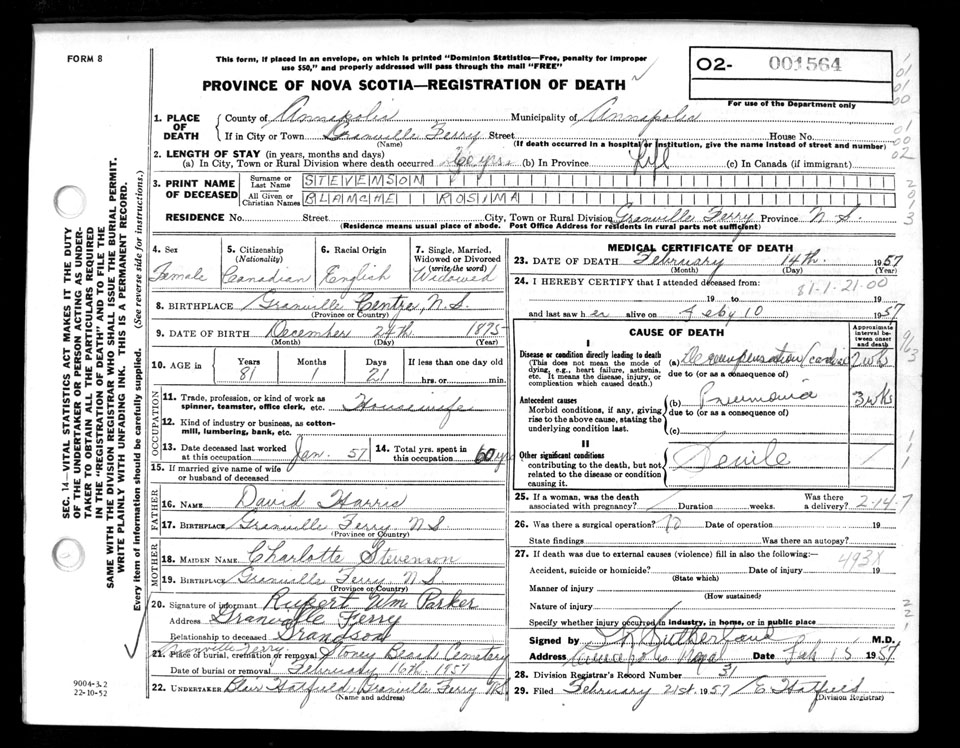 FORM 8
This form, if placed in an envelope, on which is printed "Dominion Statistics—Free, penalty for improper
use $50," and properly addressed will pass through the mail "FREE"
PROVINCE OF NOVA SCOTIA—REGISTRATION OF DEATH
O2- 001564
For use of the Department only
1. PLACE OF DEATH
County of Annapolis Municipality of Annapolis
If in City or Town Granville Ferry Street House No.
(Name) (If death occurred in a hospital or institution, give the name instead of street and number)
2. LENGTH OF STAY (in years, months and days)
(a) In City, Town or Rural Division where death occurred yrs. (b) In Province Life (c) In Canada (if immigrant)
3. PRINT NAME OF DECEASED
Surname or Last Name STEVENSON
All Given or Christian Names BLANCHE ROSINA
RESIDENCE No. Street City, Town or Rural Division Granville Ferry Province N.S.
(Residence means usual place of abode. Post Office Address for residents in rural parts not sufficient)
4. Sex Female
5. Citizenship (Nationality) Canadian
6. Racial Origin English
7. Single, Married, Widowed or Divorced (write the word) Widowed
8. BIRTHPLACE Granville Centre, N.S.
(Province or Country)
9. DATE OF BIRTH December 24th 1875
(Month) (Day) (Year)
10. AGE in Years 81 Months 1 Days 21 If less than one day old hrs. or min.
OCCUPATION
11. Trade, profession, or kind of work as spinner, teamster, office clerk, etc. Housewife
12. Kind of industry or business, as cotton-mill, lumbering, bank, etc.
13. Date deceased last worked at this occupation Jan. 57
14. Total yrs. spent in this occupation 60 yrs
15. If married give name of wife or husband of deceased
FATHER
16. NAME David Harris
17. BIRTHPLACE Granville Ferry N.S.
(Province or Country)
MOTHER
18. MAIDEN NAME Charlotte Stevenson
19. BIRTHPLACE Granville Ferry N.S.
(Province or Country)
20. Signature of informant Rupert Wm Parker
Address Granville Ferry
Relationship to deceased Grandson
Granville Ferry
21. Place of burial, cremation or removal Stoney Beach Cemetery
Date of burial or removal February 16th 1957
22. UNDERTAKER Blair Hatfield, Granville Ferry NS
(Name and address)
MEDICAL CERTIFICATE OF DEATH
23. DATE OF DEATH February 14th 1957
(Month) (Day) (Year)
24. I HEREBY CERTIFY that I attended deceased from:
81-1-21-00
19 to 19
and last saw her alive on Feby 10 1957
CAUSE OF DEATH
Approximate interval between onset and death
I
Disease or condition directly leading to death
(This does not mean the mode of dying, e.g., heart failure, asthenia, etc. It means the disease, injury, or complication which caused death.)
(a) Decompensation (cardiac 2 wks
due to (or as a consequence of)
Antecedent causes
Morbid conditions, if any, giving rise to the above cause, stating the underlying condition last.
(b) Pneumonia 3 wks
due to (or as a consequence of)
(c)
II
Other significant conditions
contributing to the death, but not related to the disease or condition causing it.
Senile
25. If a woman, was the death associated with pregnancy? Duration weeks. Was there a delivery? 2-14-7
26. Was there a surgical operation? No Date of operation 19
State findings Was there an autopsy?
27. If death was due to external causes (violence) fill in also the following:—
493X
Accident, suicide or homicide? Date of injury 19
(State which)
Manner of injury
(How sustained)
Nature of injury
Specify whether injury occurred in industry, in home, or in public place
Signed by Sutherland M.D.
Address Annapolis Royal Date Feb 15 1957
28. Division Registrar's Record Number 31
29. Filed February 21st 1957 E. Hatfield
(Division Registrar)
SEC. 14—VITAL STATISTICS ACT MAKES IT THE DUTY
OF THE UNDERTAKER OR PERSON ACTING AS UNDER-
TAKER TO OBTAIN ALL THE PARTICULARS REQUIRED
IN THE "REGISTRATION OF DEATH" AND TO FILE THE
SAME WITH THE DIVISION REGISTRAR WHO SHALL ISSUE THE BURIAL PERMIT.
WRITE PLAINLY WITH UNFADING INK. THIS IS A PERMANENT RECORD.
Every item of information should be carefully supplied. (See reverse side for instructions.)
9004-3.2
22-10-52